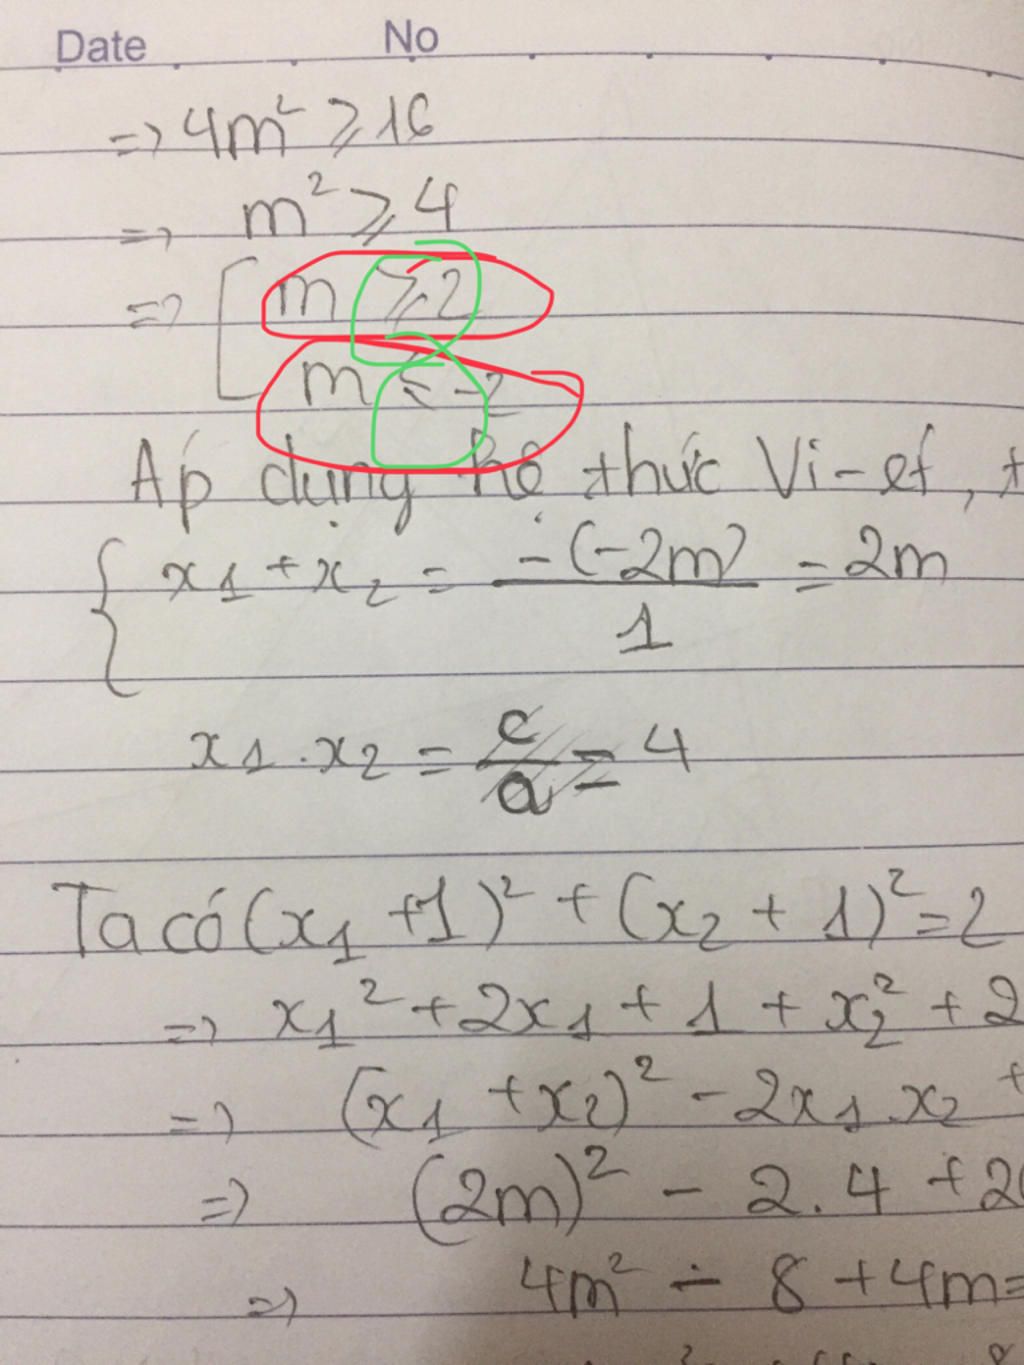 Date No
=> 4m² ⩾ 16
=> m² ⩾ 4
=> [ m ⩾ 2
m ⩽ -2
Áp dụng hệ thức Vi-et,
{ x1 + x2 = -(-2m)/1 = 2m
x1 . x2 = c/a = 4
Ta có (x1 + 1)² + (x2 + 1)² = 2
=> x1² + 2x1 + 1 + x2² + 2
=> (x1 + x2)² - 2x1.x2 +
=> (2m)² - 2.4 + 2
=> 4m² - 8 + 4m =